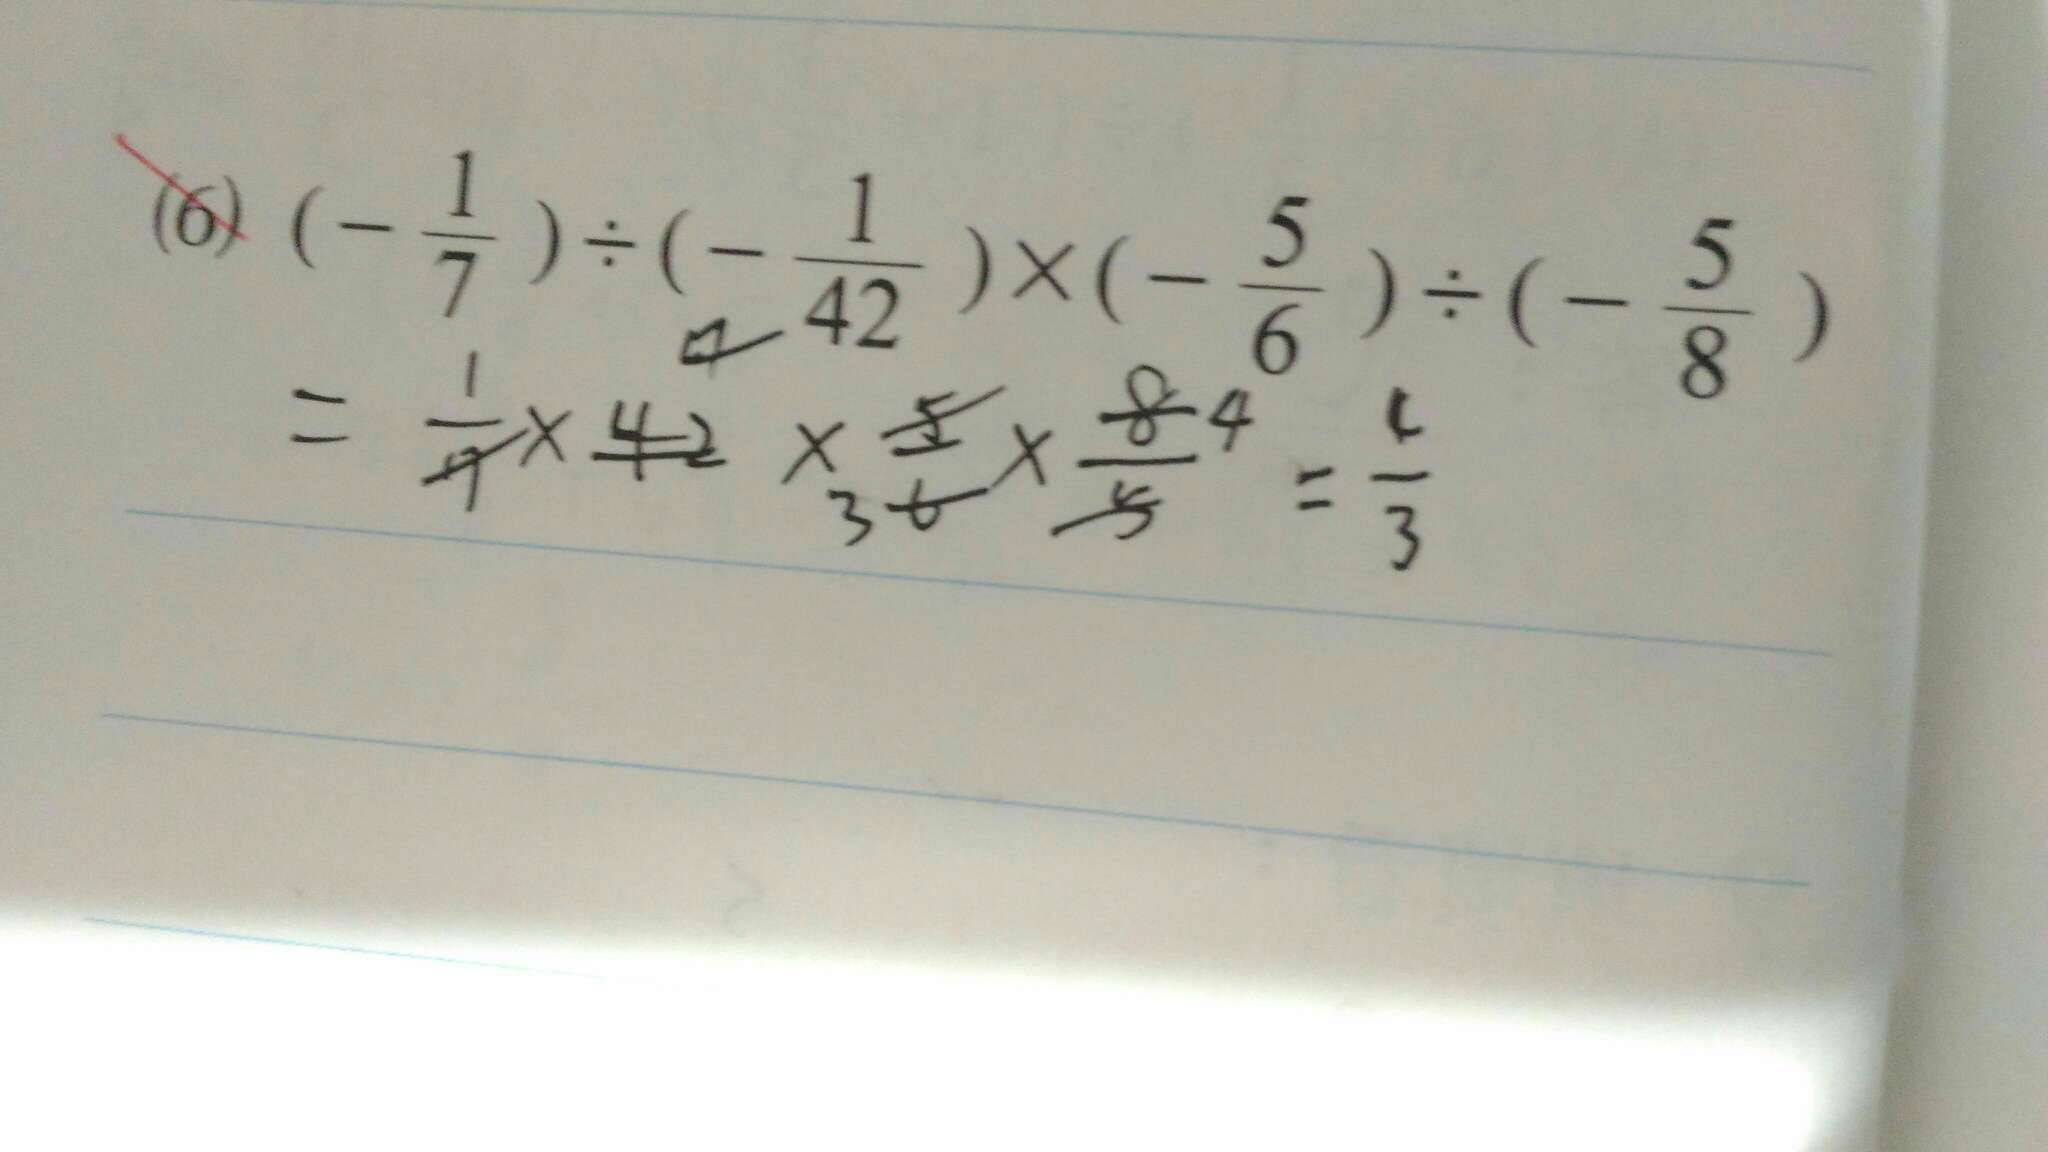 (6) (-1/7)÷(-1/42)×(-5/6)÷(-5/8)
= 1/7 × 42 × 5/6 × 8/5 = 4/3